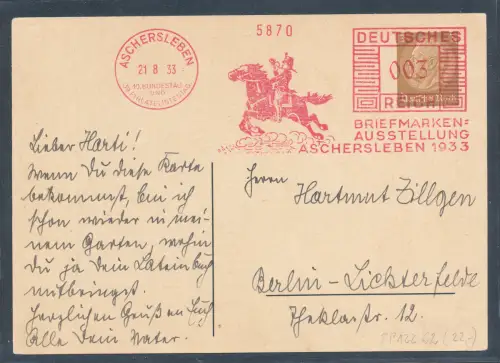 5870
ASCHERSLEBEN
21 8 33
15. BUNDESTAG
UND
DEUTSCHES
003
REICH
BRIEFMARKEN=
AUSSTELLUNG
ASCHERSLEBEN 1933
Lieber Harti!
Wenn Du diese Karte
bekommst, bin ich
schon wieder in mei-
nem Garten, wohin
Du ja Dein Lateinbuch
mitbringst.
Herzlichen Gruß an Euch
Alle Dein Vater.
Herrn
Hartmut Zillgen
Berlin-Lichterfelde
Theklastr. 12.